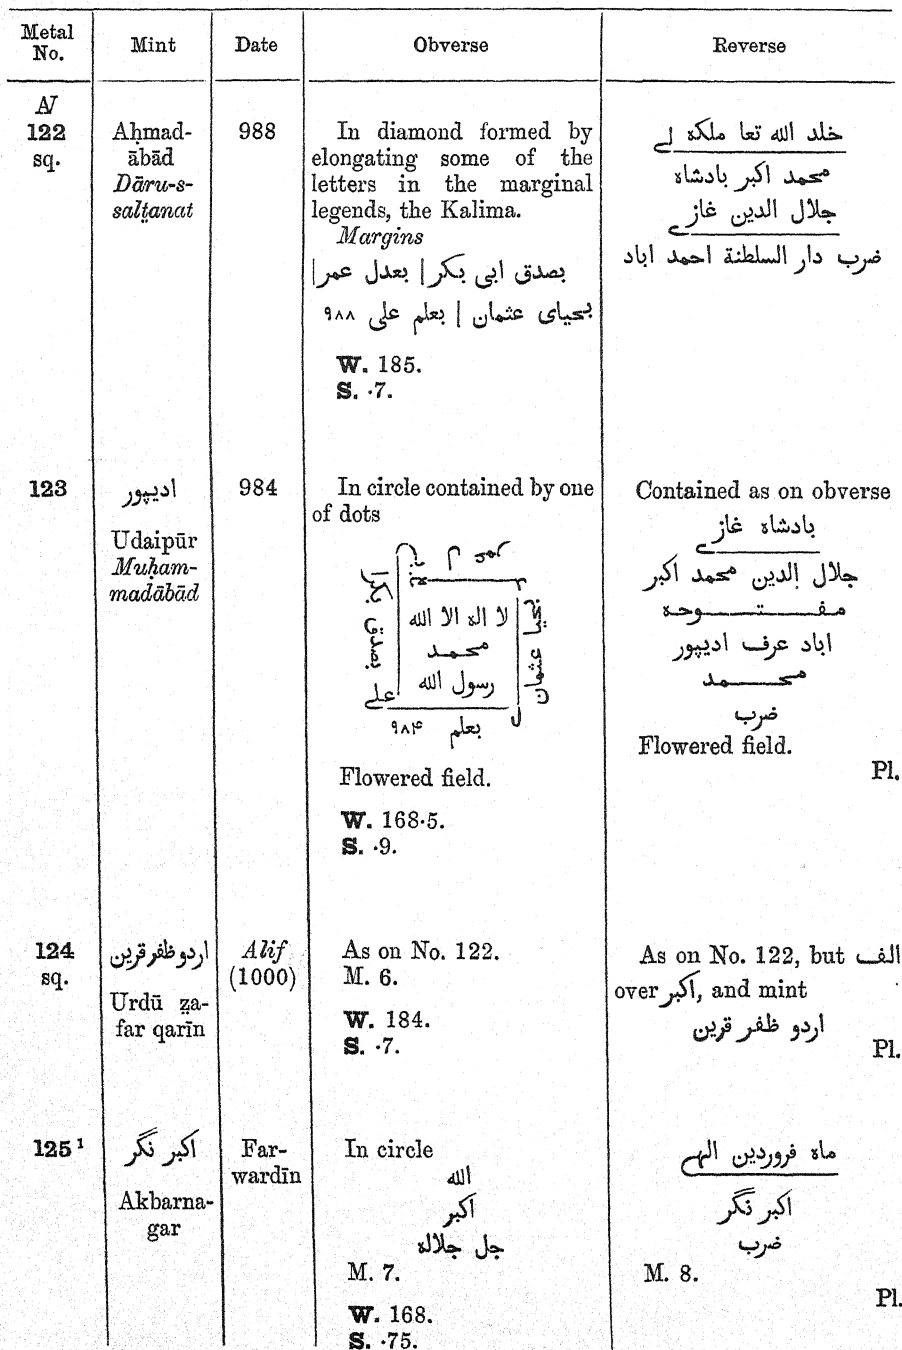 Metal No. Mint Date Obverse Reverse
AV
122
sq.
Aḥmad-
ābād
Dāru-s-
salṭanat
988
In diamond formed by
elongating some of the
letters in the marginal
legends, the Kalima.
Margins
بصدق ابى بكر | بعدل عمر |
بحياى عثمان | بعلم على ۹۸۸
W. 185.
S. ·7.
خلد الله تعا ملكه لے
محمد اكبر بادشاه
جلال الدين غازے
ضرب دار السلطنة احمد اباد
123
اديپور
Udaipūr
Muḥam-
madābād
984
In circle contained by one
of dots
لا اله الا الله
محمد
رسول الله
بصدق
بكر
عثمان
على
بعلم ۹۸۴
Flowered field.
W. 168·5.
S. ·9.
Contained as on obverse
بادشاه غازے
جلال الدين محمد اكبر
مفتوحه
اباد عرف اديپور
محمد
ضرب
Flowered field.
Pl.
124
sq.
اردو ظفر قرين
Urdū ẓa-
far qarīn
Alif
(1000)
As on No. 122.
M. 6.
W. 184.
S. ·7.
As on No. 122, but الف
over اكبر, and mint
اردو ظفر قرين
Pl.
125 ¹
اكبر نگر
Akbarna-
gar
Far-
wardīn
In circle
الله
اكبر
جل جلاله
M. 7.
W. 168.
S. ·75.
ماه فروردين الهے
اكبر نگر
ضرب
M. 8.
Pl.